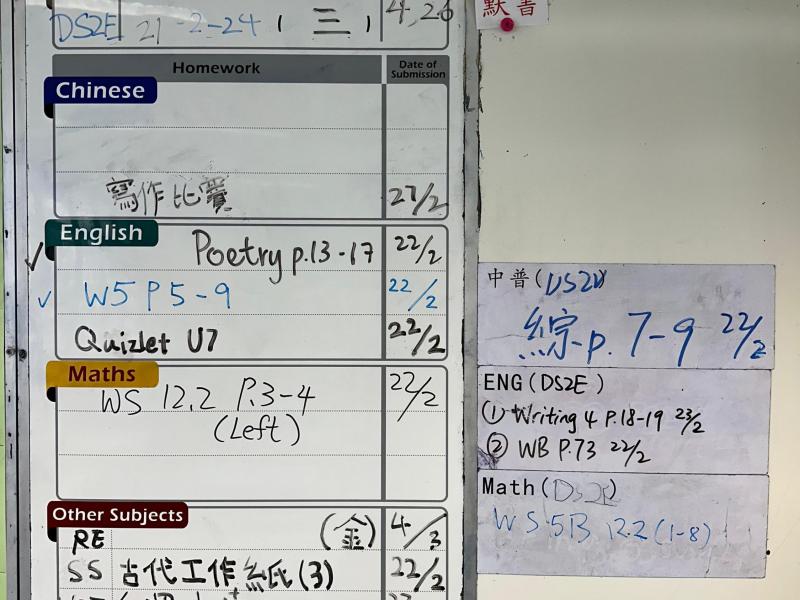 DS2E 21-2-24 (三) 4,26
Homework Date of Submission
Chinese
寫作比賽 27/2
English
Poetry p.13-17 22/2
W5 P5-9 22/2
Quizlet U7 22/2
Maths
WS 12.2 P.3-4 22/2
(Left)
Other Subjects
RE (金) 4/3
SS 古代工作紙(3) 22/2
默書
中普(DS2D)
綜p.7-9 22/2
ENG (DS2E)
① Writing 4 P.18-19 23/2
② WB P.73 22/2
Math (DS2E)
WS 5B 12.2 (1-8)